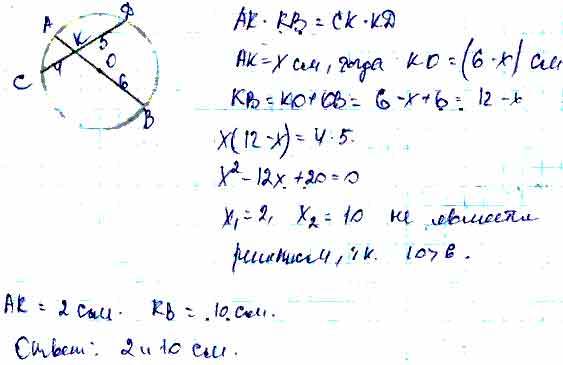 A
D
K
O
5
C
4
6
B
AK · KB = CK · KD
AK = x см, тогда KO = (6 - x) см
KB = KO + OB = 6 - x + 6 = 12 - x
x(12 - x) = 4 · 5.
x² - 12x + 20 = 0
x₁ = 2, x₂ = 10 не является
решением, т.к. 10 > 6.
AK = 2 см. KB = 10 см.
Ответ: 2 и 10 см.